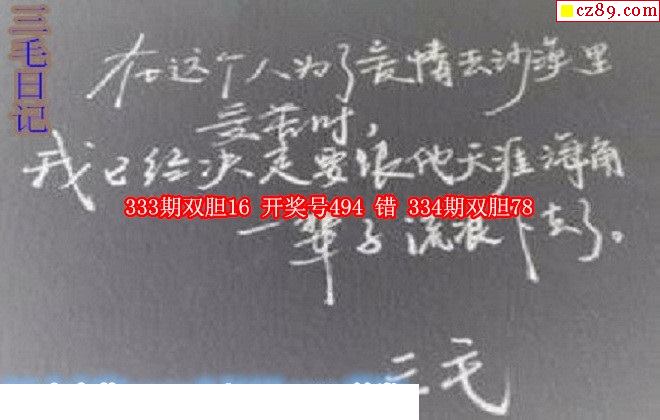 cz89.com
三毛日记
在这个人为了爱情去沙漠里
受苦时，
我已经决定要跟他天涯海角
333期双胆16 开奖号494 错 334期双胆78
一辈子流浪下去了。
三毛